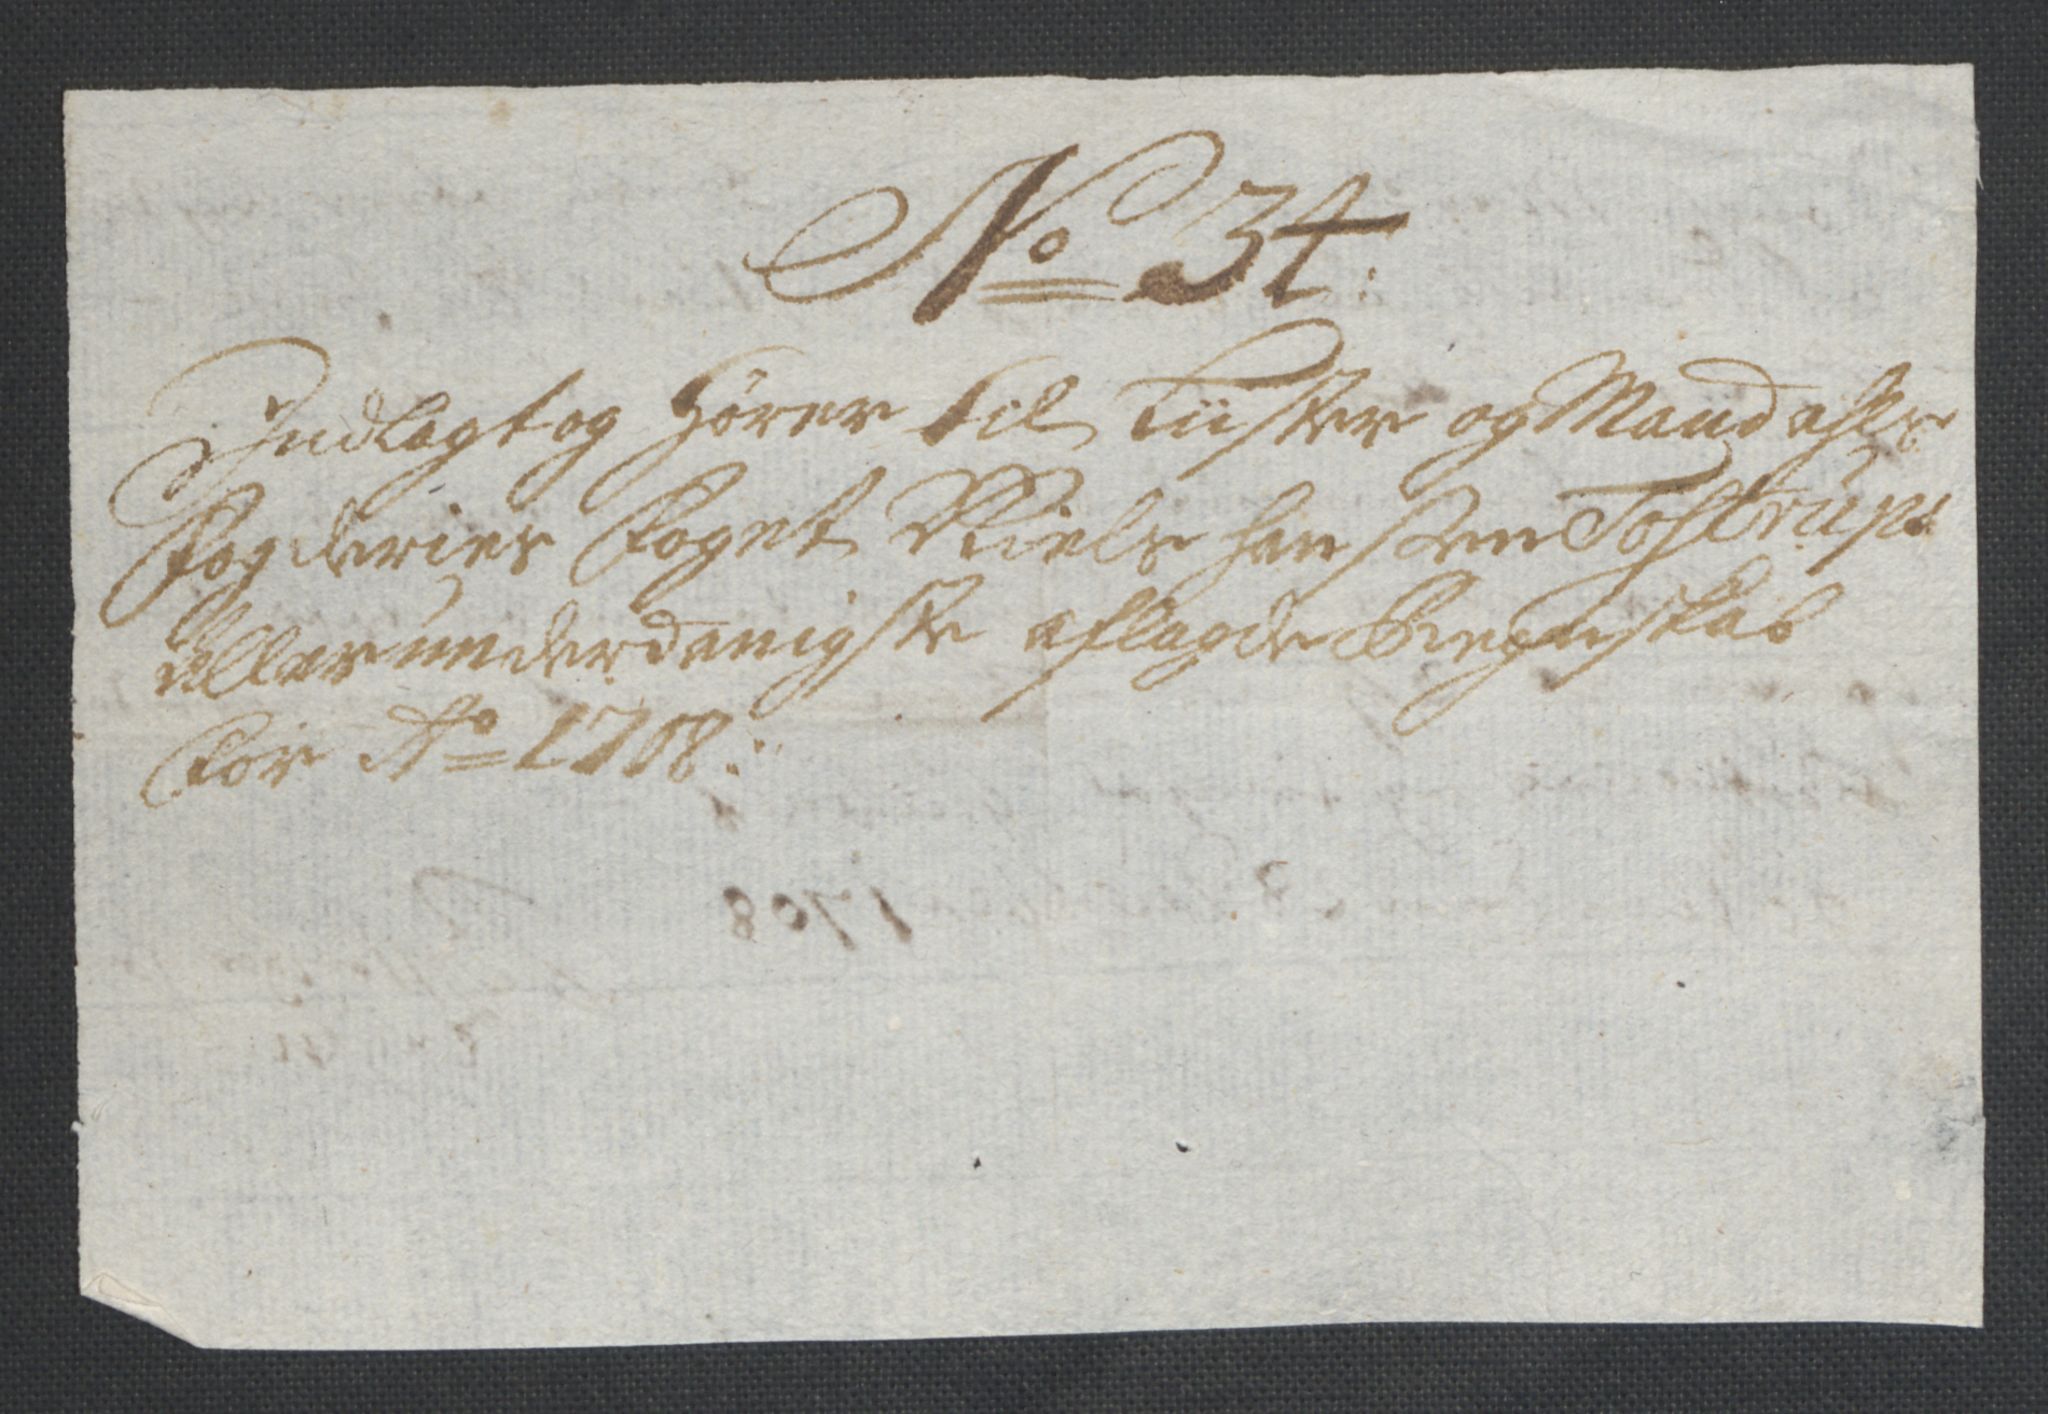 No 34.
Indlagt og hörer til Lister og Mandahls
Fogderies Foget Niels Hanssen Tostrups
Allerunderdanigste aflagde Regenskab
for Ao 1708.